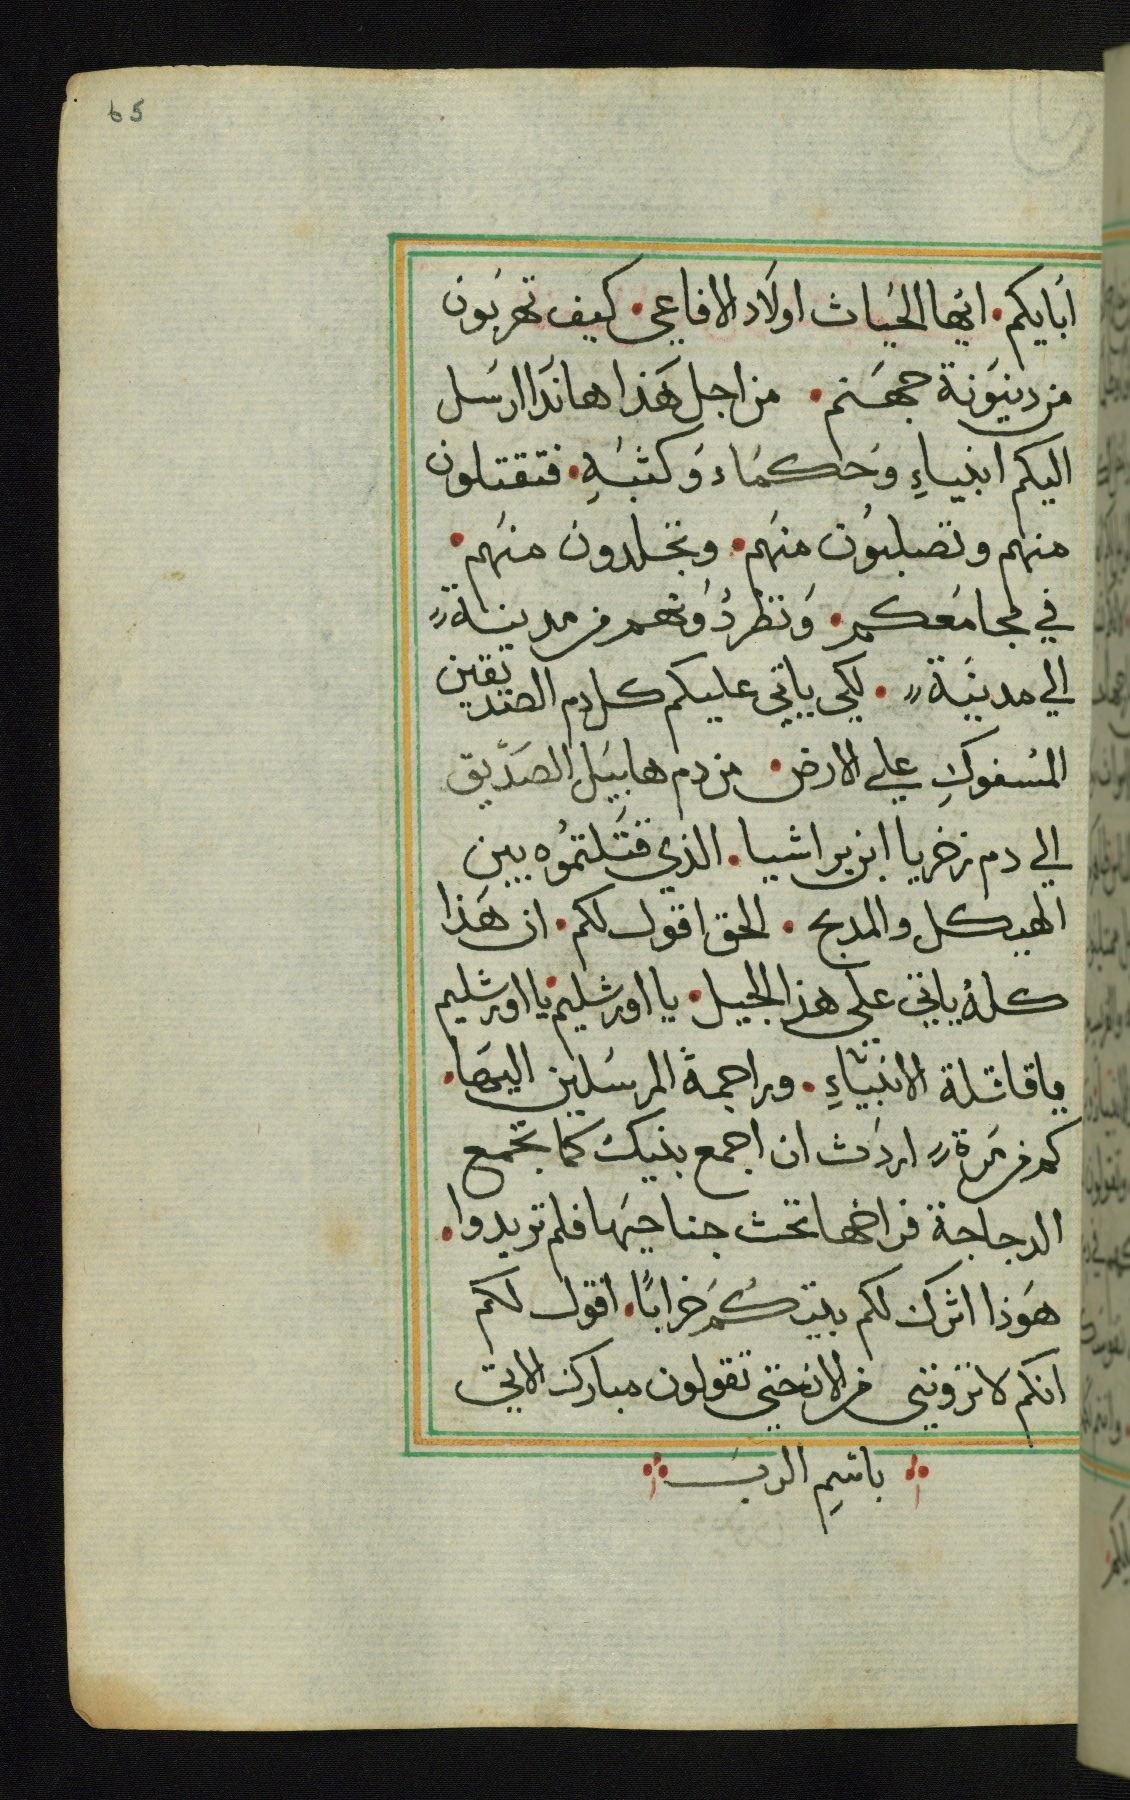 65
ابايكم. ايها الحيات اولاد الافاعي. كيف تهربون
من دينونة جهنم. من اجل هذا هانذا ارسل
اليكم انبياءِ وحكماء وكتبهِ. فتقتلون
منهم وتصلبون منهم. وتجلدون منهم.
في مجامعكم. وتطردونهم من مدينة
الي مدينة. لكي ياتي عليكم كل دم الصديقين
المسفوكِ علي الارض. من دم هابيل الصدّيق
الي دم زخريا ابن براشيا. الذي قتلتموُه بين
الهيكل والمدبح. الحق اقول لكم. ان هذا
كلهُ ياتي علي هذا الجيل. يا اورشليم. يا اورشليم
ياقاتلة الانبياءِ. وراجمة المرسلين اليها.
كم من مرة اردت ان اجمع بنيك كما تجمع
الدجاجة فراخها تحت جناحيها فلم تريدوا.
هوذا اترك لكم بيتكُم خرابًا. اقول لكم
انكم لا تروني من الان حتي تقولون مبارك الاتي
باسمِ الرب